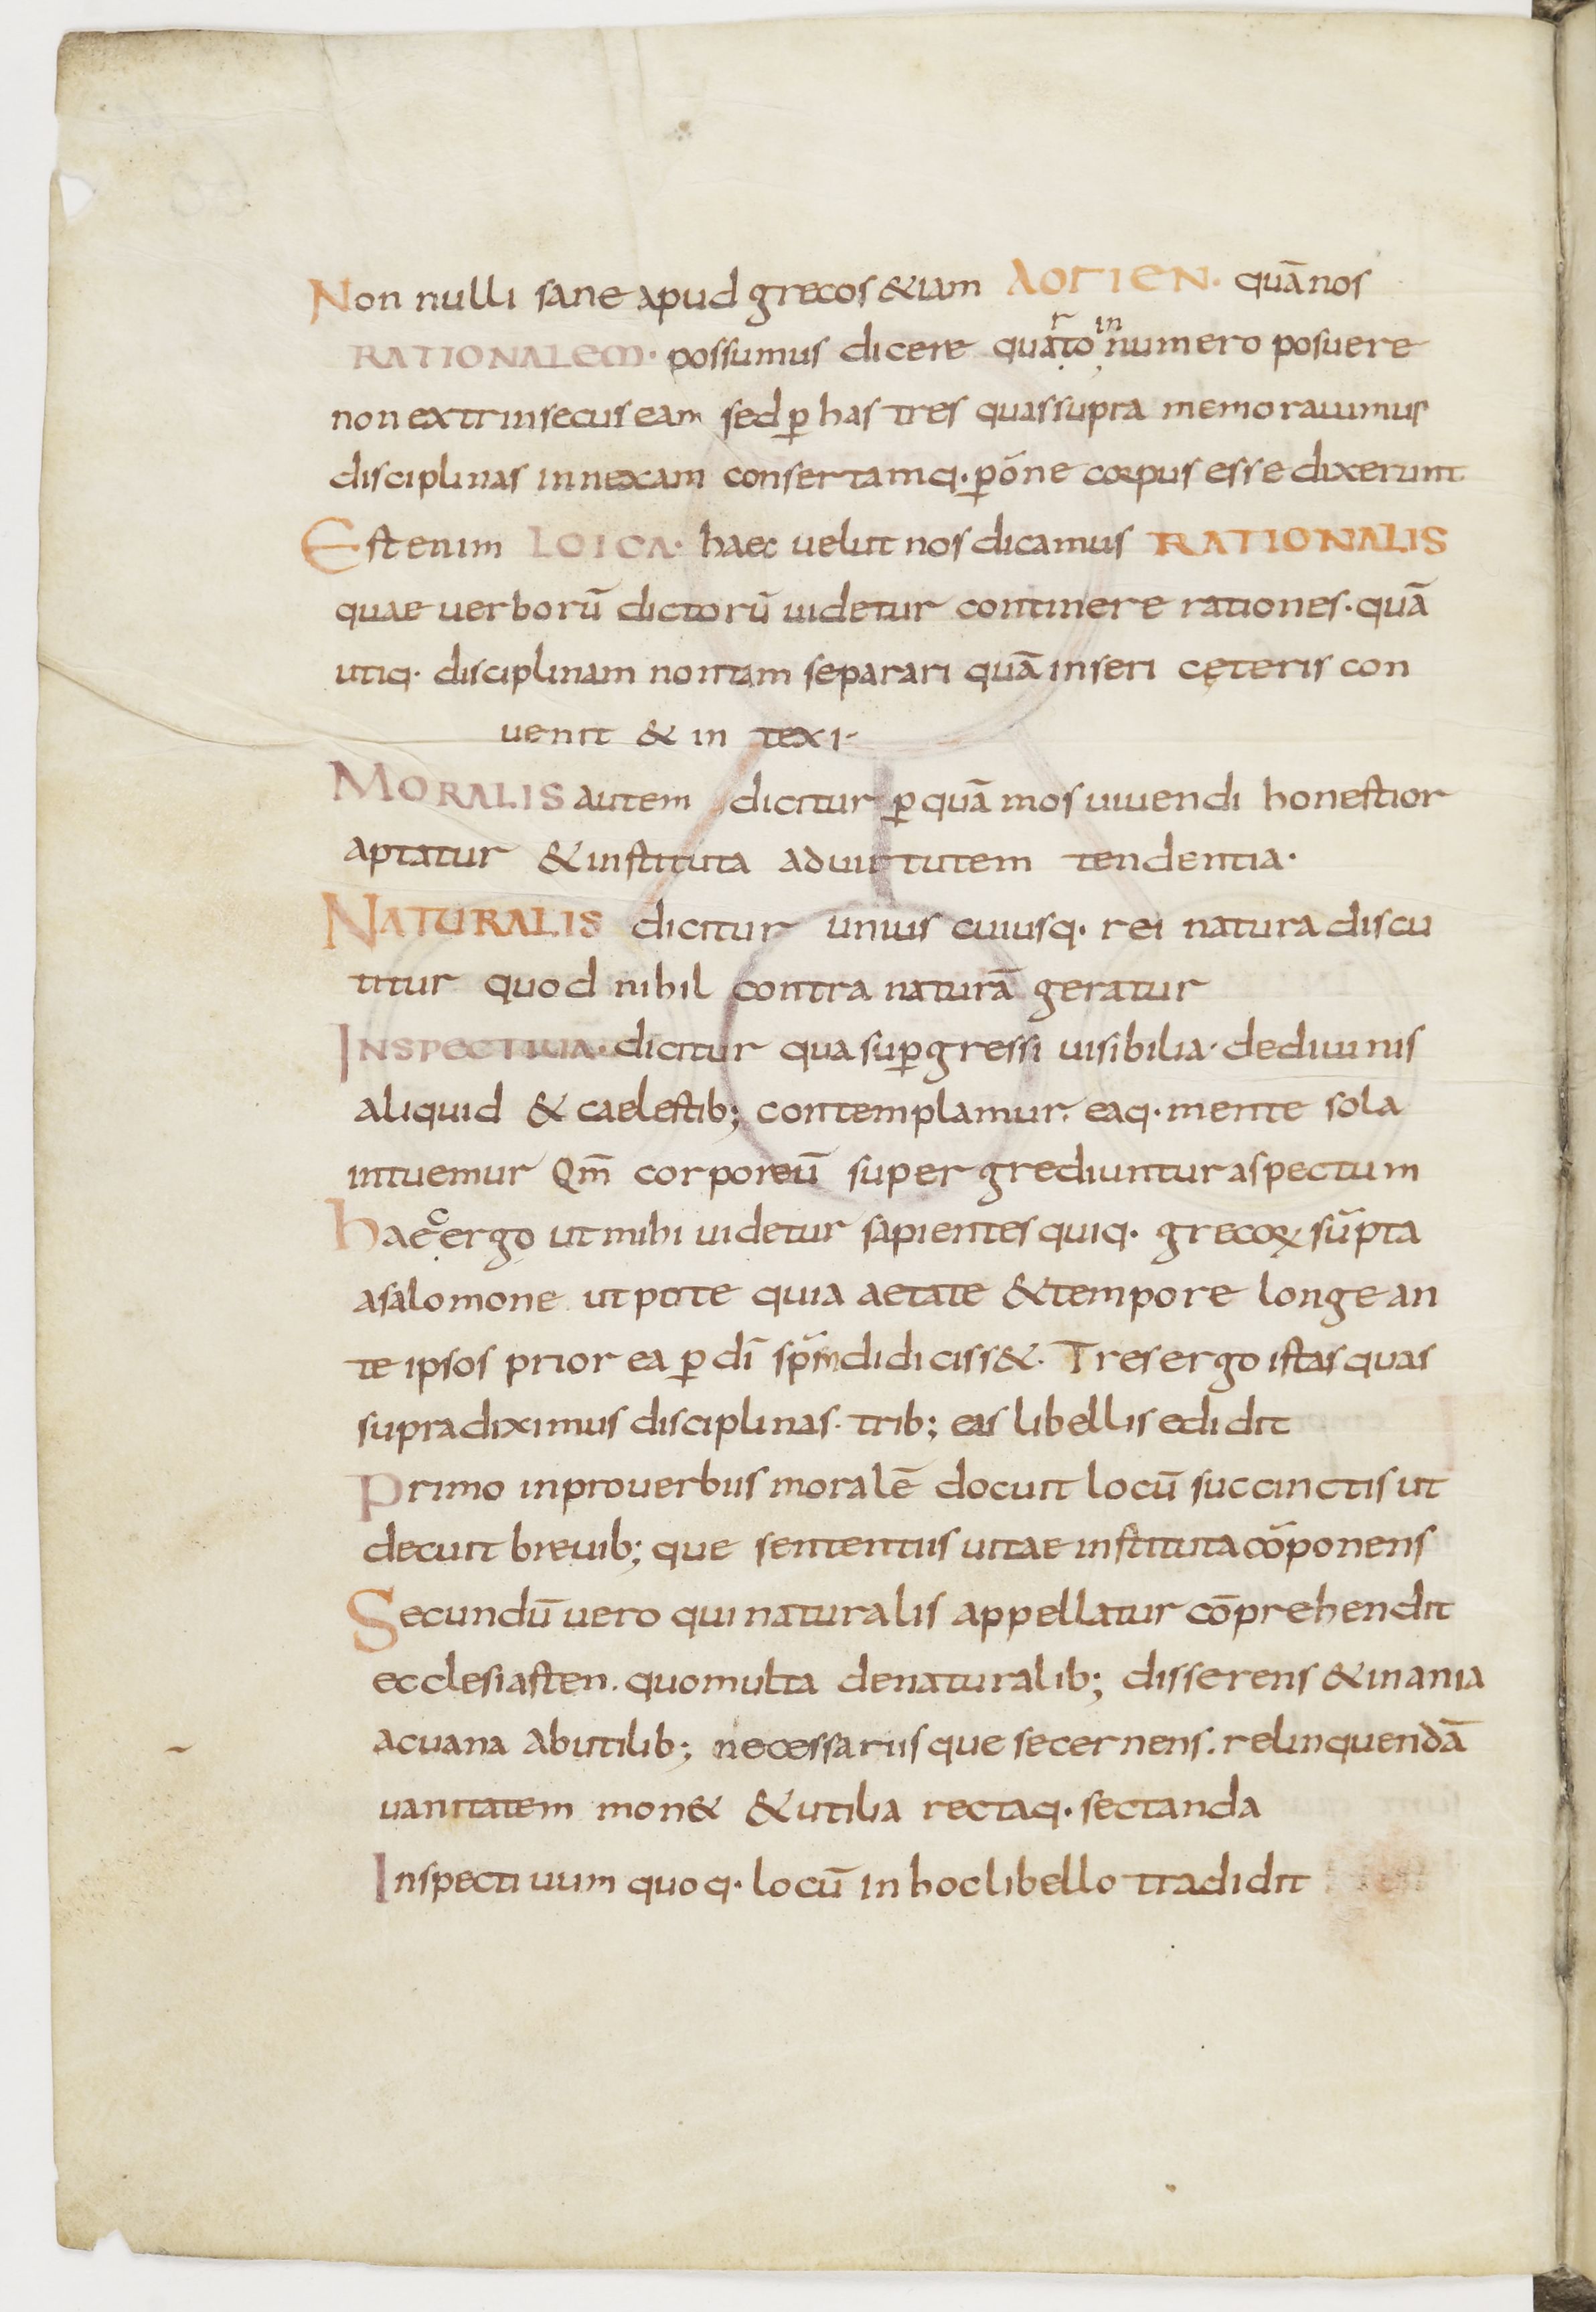 Non nulli sane apud grecos &iam ΛΟΓΙΕΝ· quā nos
RATIONALEM· possumus dicere quarto in numero posuere
non extrinsecus eam sed ꝑ has tres quas supra memoravimus
disciplinas innexam consertamq· ꝑ ōne corpus esse dixerunt
Est enim LOICA· haec velut nos dicamus RATIONALIS
quae verborū dictorū videtur continere rationes· quā
utiq· disciplinam non tam separari quā inseri cęteris con
venit & in texi·
MORALIS autem dicitur ꝑ quā mos vivendi honestior
aptatur & instituta ad virtutem tendentia·
NATURALIS dicitur unius cuiusq· rei natura discu
titur quod nihil contra naturā geratur
INSPECTIVA· dicitur qua suꝑgressi visibilia· de divinis
aliquid & caelestib; contemplamur· eaq· mente sola
intuemur Qm̄ corporeū super grediuntur aspectum
Haec ergo ut mihi videtur sapientes quiq· grecoꝝ sūpta
a salomone ut pote quia aetate & tempore longe an
te ipsos prior ea ꝑ dī sp̄m didiciss&· Tres ergo istas quas
supra diximus disciplinas· trib; eas libellis edidit
Primo in proverbiis moralē docuit locū succinctis ut
decuit brevib; que sententiis vitae instituta cōponens
Secundū vero qui naturalis appellatur cōprehendit
ecclesiasten· quo multa de naturalib; disserens & inania
ac vana ab utilib; necessariis que secernens· relinquendā
vanitatem mon& & utilia rectaq· sectanda
Inspectivum quoq· locū in hoc libello tradidit